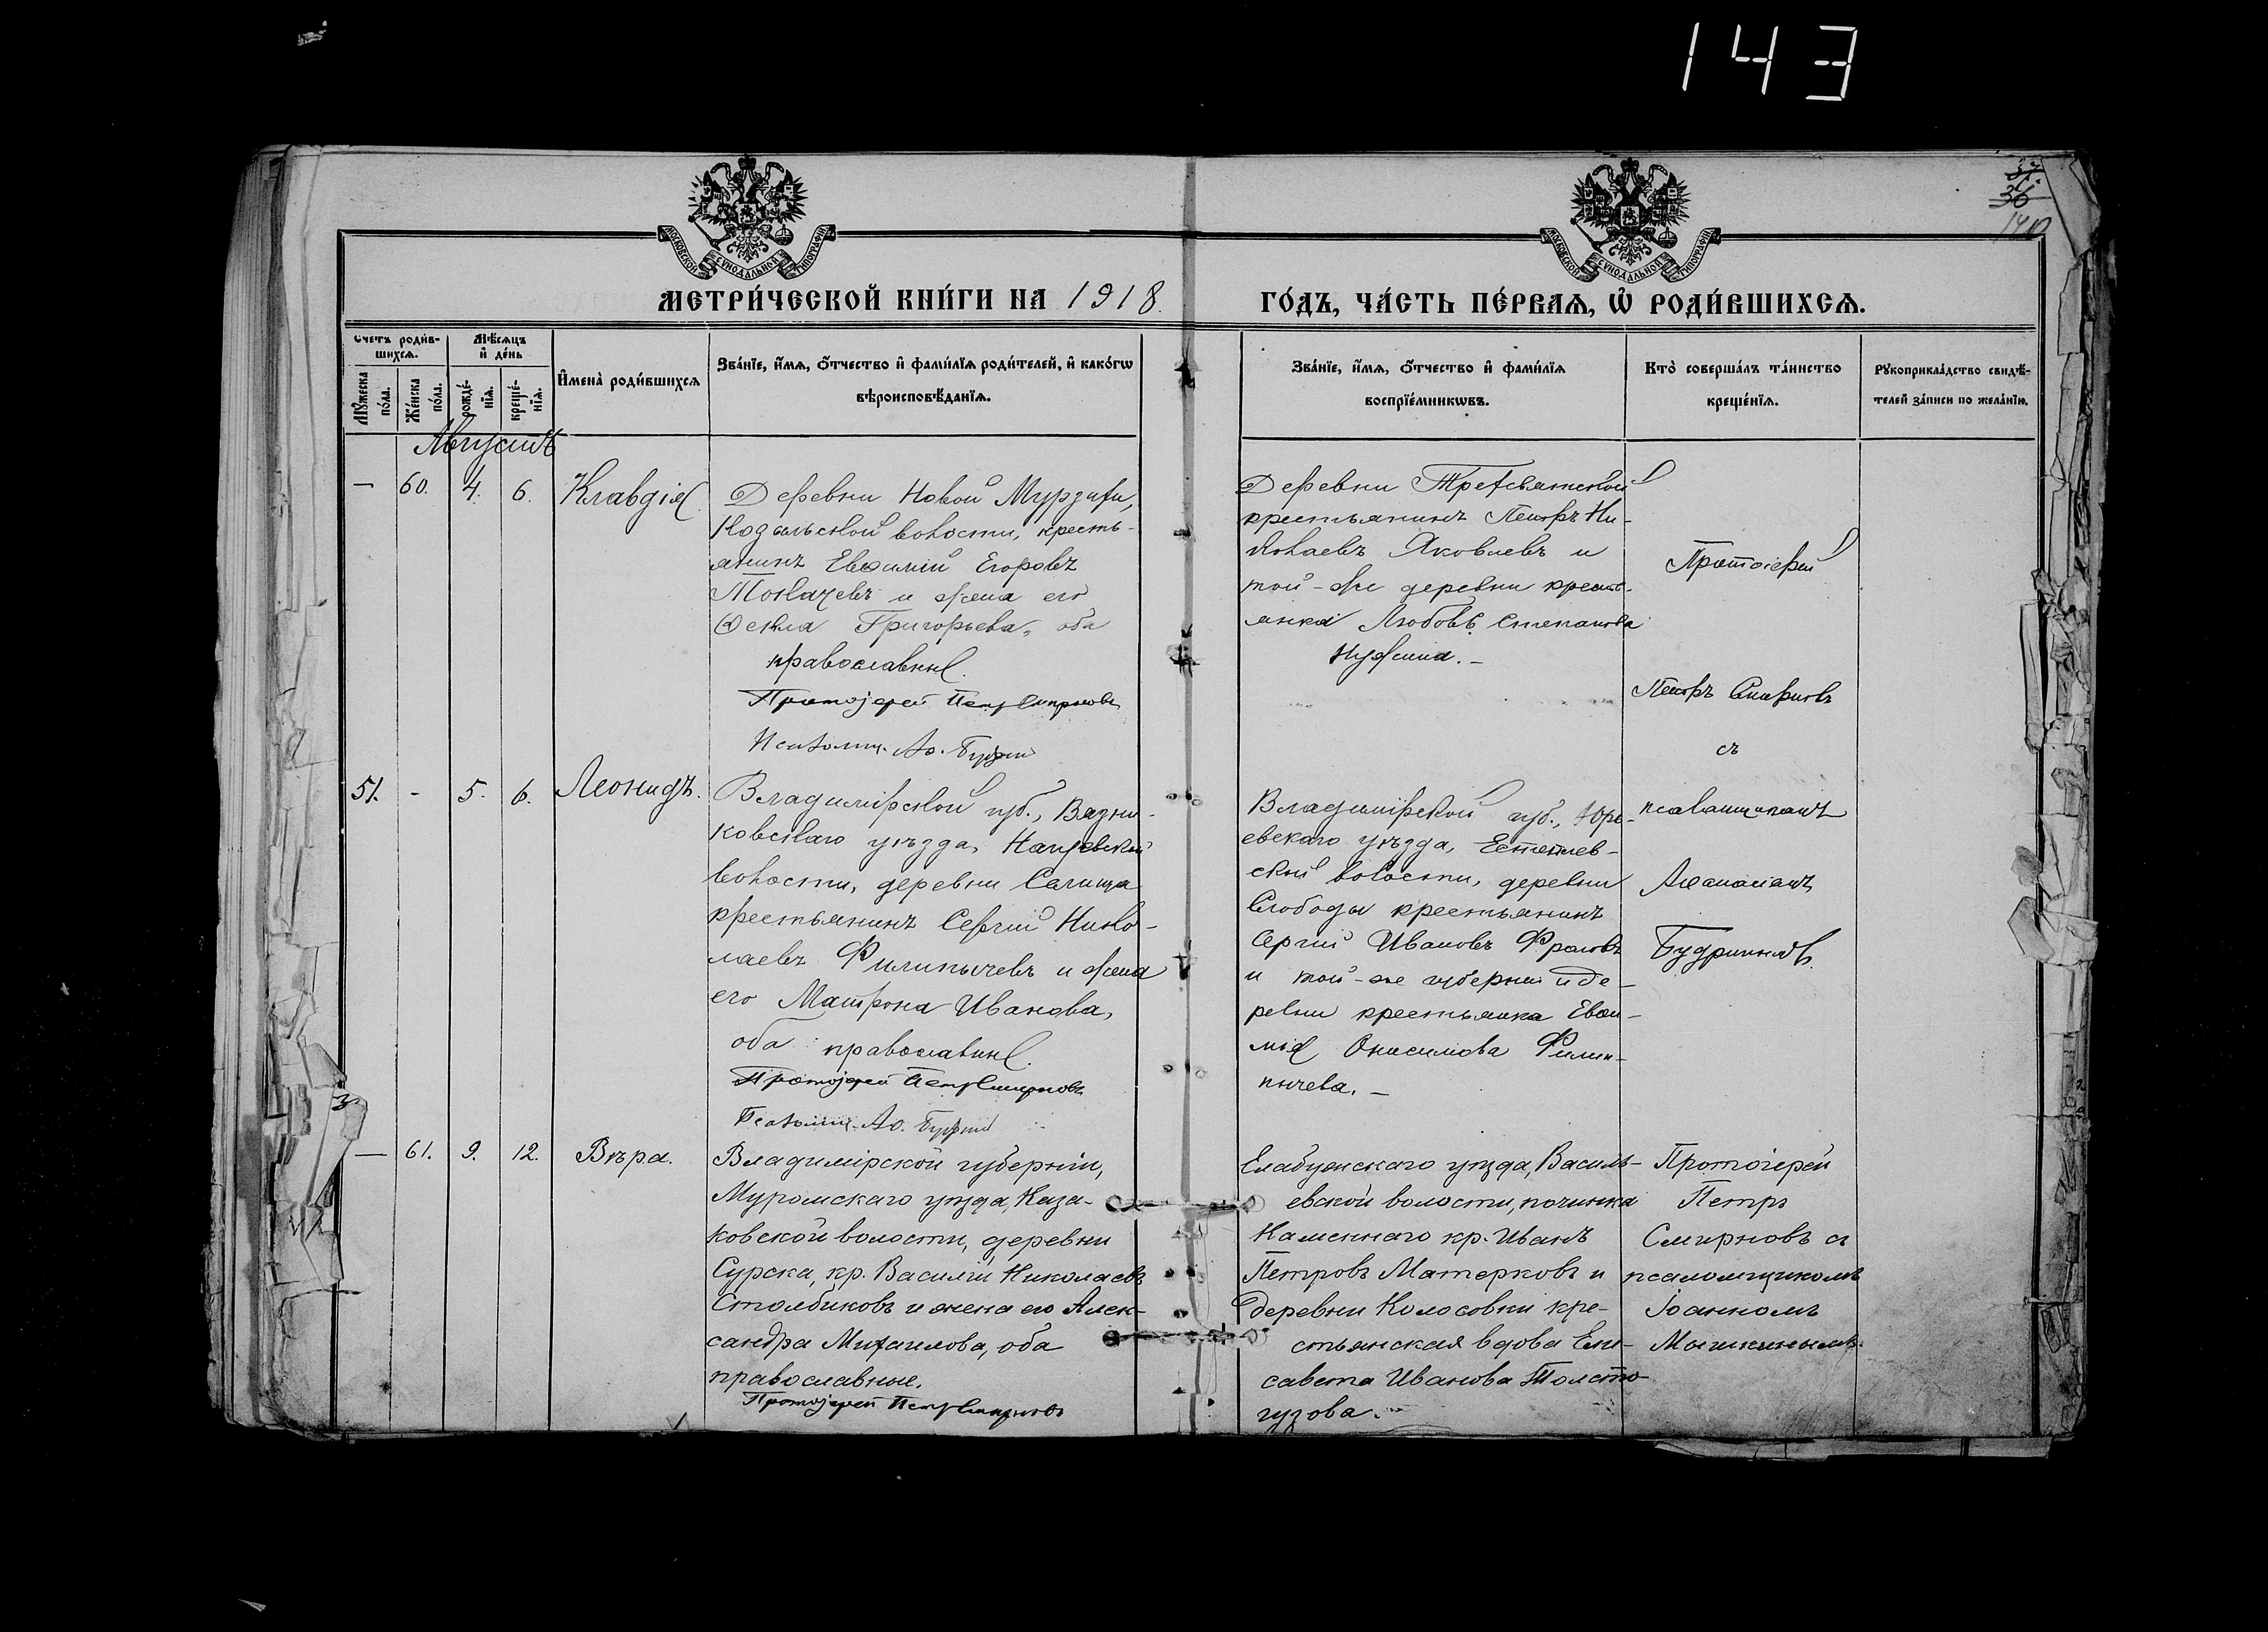 143
37.
36
140
МОСКОВСКОЙ СУНОДАЛЬНОЙ ТИПОГРАФІИ
МОСКОВСКОЙ СУНОДАЛЬНОЙ ТИПОГРАФІИ
МЕТРИ́ЧЕСКОЙ КНИ́ГИ НА 1918
ГО́ДЪ, ЧА́СТЬ ПЕ́РВАѦ, Ѽ РОДИ́ВШИХСѦ.
Счетъ роди́в-
шихсѧ.
Мѣ́сѧцъ
и҆ де́нь
Мꙋ́жеска
по́ла.
Же́нска
по́ла.
рожде́-
нїѧ.
креще́-
нїѧ.
И҆мена̀ роди́вшихсѧ
Зва́нїе, и҆́мѧ, ѻ҆́тчество и҆ фами́лїѧ роди́телей, и҆ како́гѡ
вѣроисповѣ́данїѧ.
Зва́нїе, и҆́мѧ, ѻ҆́тчество и҆ фами́лїѧ
воспрїе́мникѡвъ.
Кто̀ соверша́лъ та́инство
креще́нїѧ.
Рꙋкоприкла́дство свидѣ́-
телей за́писи по жела́нїю.
Августъ
— 60. 4. 6. Клавдія
Деревни Новой Мурзихи,
Козыльской волости, кресть-
янинъ Евѳимій Егоровъ
Толкачевъ и жена его
Ѳекла Григорьева, оба
православные.
Протоіерей Петръ Смирновъ
Псаломщ. Аѳ.
Деревни Трехсвятской
крестьянинъ Петръ Ни-
колаевъ Яковлевъ и
той-же деревни кресть-
янка Любовь Степанова
Протоіерей
Петръ Смирновъ
съ
псаломщикомъ
Аѳанасіемъ
51. - 5. 6. Леонидъ.
Владимірской губ., Вязни-
ковскаго уѣзда,
волости, деревни
крестьянинъ Сергій Нико-
лаевъ Филипычевъ и жена
его Матрона Иванова,
оба православные.
Протоіерей Петръ Смирновъ
Псаломщ. Аѳ.
Владимірской губ., Юрь-
евскаго уѣзда,
волости, деревни
Слободы крестьянинъ
Сергій Ивановъ Фроловъ
и той-же губерніи и де-
ревни крестьянка Евѳи-
мія Онисимова Филип-
пычева. —
— 61. 9. 12. Вѣра.
Владимірской губерніи,
Муромскаго уѣзда, Каза-
ковской волости, деревни
Сурска, кр. Василій Николаевъ
Столбиковъ и жена его Алек-
сандра Михаилова, оба
православные.
Протоіерей Петръ Смирновъ
Елабужскаго уѣзда, Василь-
евской волости, починка
Каменнаго кр. Иванъ
Петровъ Матерковъ и
деревни Колосовки кре-
стьянская вдова Ели-
савета Иванова Толсто-
гузова.
Протоіерей
Петръ
Смирновъ съ
псаломщикомъ
Іоанномъ
Мышкинымъ.